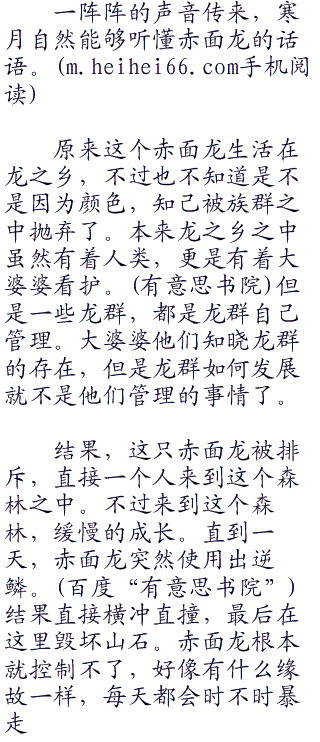 一阵阵的声音传来，寒
月自然能够听懂赤面龙的话
语。(m.heihei66.com手机阅
读)
原来这个赤面龙生活在
龙之乡，不过也不知道是不
是因为颜色，知己被族群之
中抛弃了。本来龙之乡之中
虽然有着人类，更是有着大
婆婆看护。(有意思书院)但
是一些龙群，都是龙群自己
管理。大婆婆他们知晓龙群
的存在，但是龙群如何发展
就不是他们管理的事情了。
结果，这只赤面龙被排
斥，直接一个人来到这个森
林之中。不过来到这个森
林，缓慢的成长。直到一
天，赤面龙突然使用出逆
鳞。(百度“有意思书院”)
结果直接横冲直撞，最后在
这里毁坏山石。赤面龙根本
就控制不了，好像有什么缘
故一样，每天都会时不时暴
走